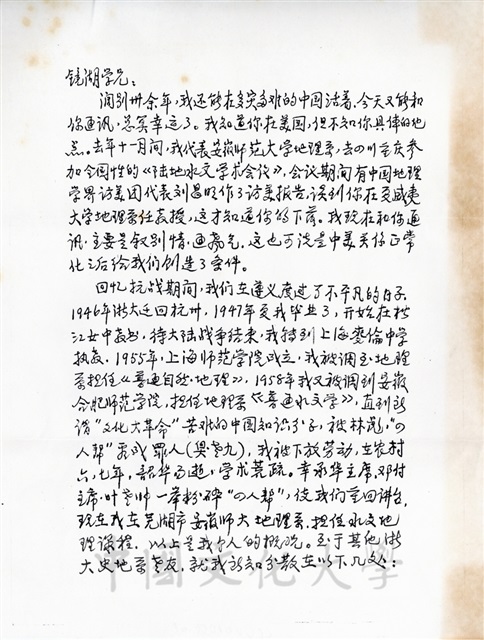 镜湖学兄：
阔别卅余年，我还能在多灾多难的中国活着，今天又能和
你通讯，总算幸运了。我知道你在美国，但不知你具体的地
点。去年十一月间，我代表安徽师范大学地理系，去四川重庆参
加全国性的《陆地水文学术会议》，会议期间有中国地理
学界访美团代表刘昌明作了访美报告，谈到你在夏威夷
大学地理系任教授，这才知道你的下落。我现在和你通
讯，主要是叙别情，通声气。这也可说是中美关系正常
化之后给我们创造了条件。
回忆抗战期间，我们在遵义度过了不平凡的日子。
1946年浙大迁回杭州，1947年夏我毕业了，开始在松
江女中教书，待大陆战争结束，我转到上海麦伦中学
执教。1955年，上海师范学院成立，我被调至地理
系担任《普通自然地理》，1958年我又被调到安徽
合肥师范学院，担任地理系《普通水文学》，直到所
谓“文化大革命”苦难的中国知识分子，被林彪，“四
人帮”弄成罪人（臭老九），我被下放劳动，在农村
六、七年，韶华易逝，学术荒疏。幸承华主席、邓付
主席、叶老帅一举粉碎“四人帮”，使我们重回讲台，
现在我在芜湖市安徽师大地理系，担任水文地
理课程，以上是我个人的概况。至于其他浙
大史地系老友，就我所知分散在以下几处：
中國文化大學